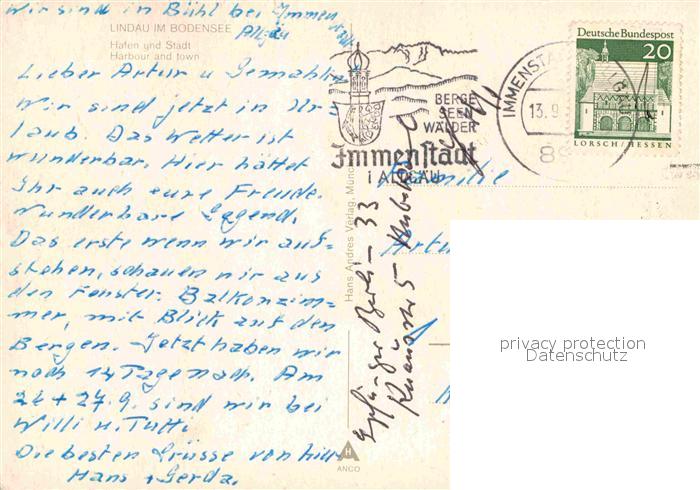 Wir sind in Bühl bei Immen
Allgäu
LINDAU IM BODENSEE
Hafen und Stadt
Harbour and town
Lieber Artur u Gemahlin
Wir sind jetzt in Ur-
laub. Das Wetter ist
wunderbar. Hier hättet
Ihr auch eure Freude.
Wunderbare Gegend.
Das erste wenn wir auf-
stehen, schauen wir aus
den Fenster. Balkonzim-
mer, mit Blick auf den
Bergen. Jetzt haben wir
noch 14 Tage nach. Am
26 + 27.9. sind wir bei
Willi u. Tutti.
Die besten Grüsse von hier
Hans + Gerda.
BERGE
SEEN
WÄLDER
Immenstadt
i ALLGÄU
IMMENSTA
13.9.
89
Deutsche Bundespost
20
LORSCH/HESSEN
Familie
Artu
Hans Andres Verlag, Münc
Empfänger Berlin - 33
5
ANCO
privacy protection
Datenschutz